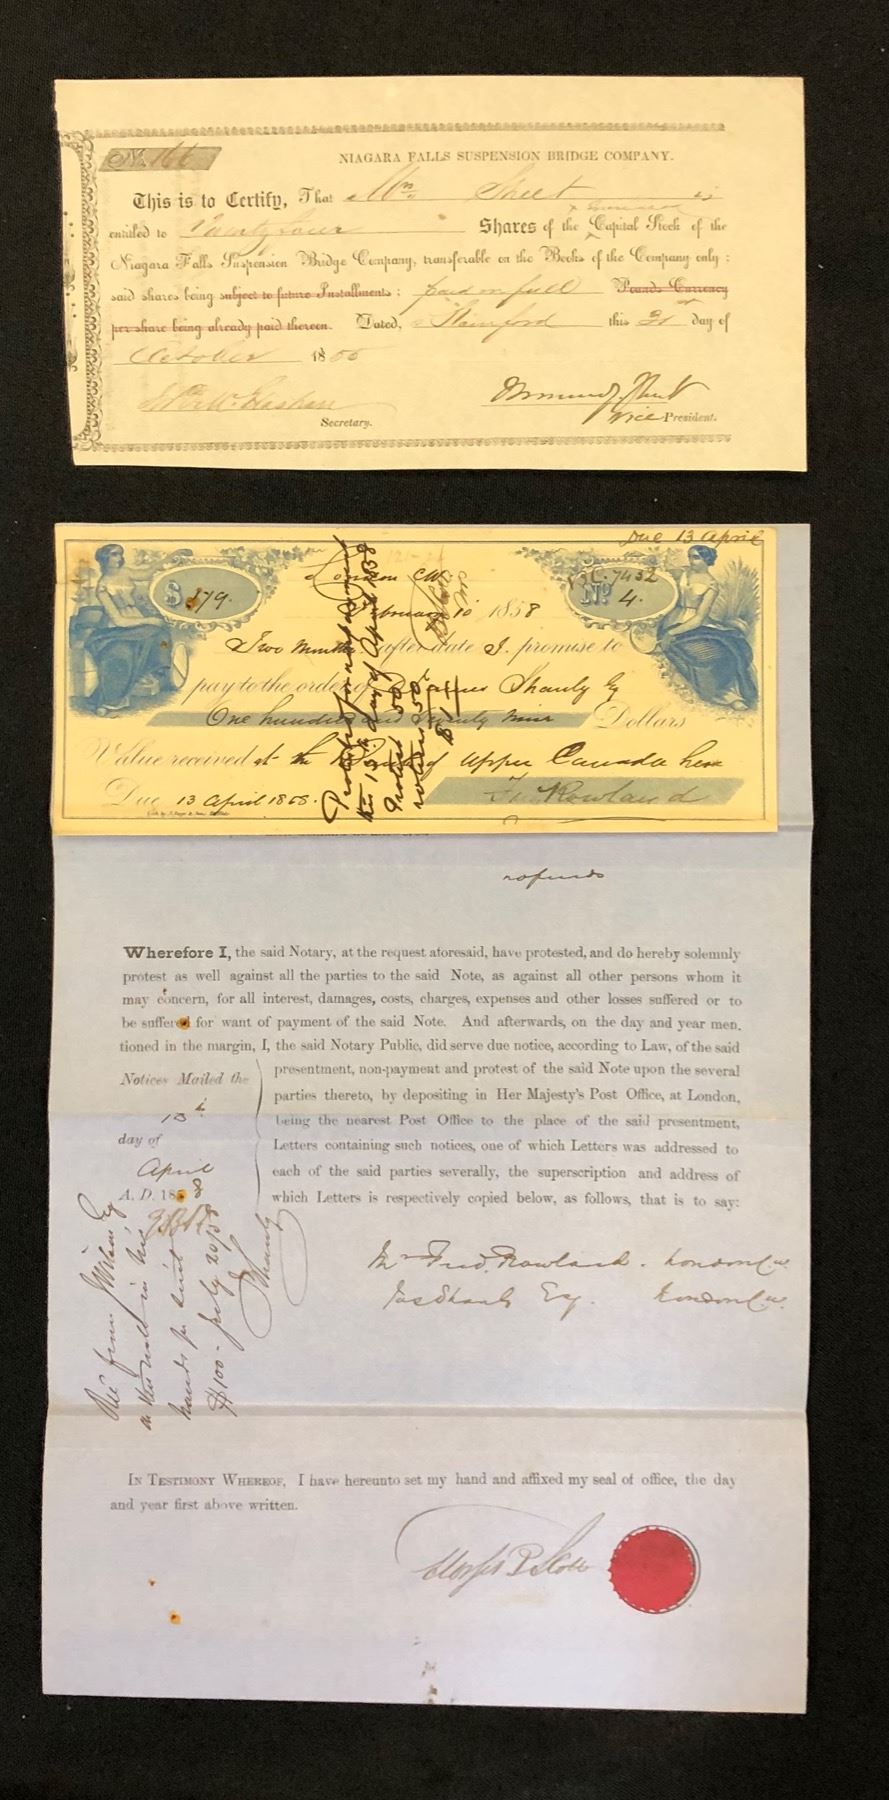 No. 166
NIAGARA FALLS SUSPENSION BRIDGE COMPANY.
This is to Certify, That Mrs. Street is
entitled to Twenty four Shares of the Capital Stock of the
Niagara Falls Suspension Bridge Company, transferable on the Books of the Company only;
said shares being subject to future Installments; paid in full Pounds Currency
per share being already paid thereon. Dated, Stamford this 31st day of
October 1855
Secretary.
Vice President.
Due 13 April
$ 179.
London CW
13C. 7432
No 4.
February 10 1858
Two Months after date I promise to
pay to the order of James Shanly Esq
One hundred and Seventy Nine Dollars
Value received at the Bank of Upper Canada here
Due 13 April 1858.
Fr. Rowland
Protested for nonpayment
this 13th day of April 1858
Protest 50
notices 50
$1
refunds
Wherefore I, the said Notary, at the request aforesaid, have protested, and do hereby solemnly
protest as well against all the parties to the said Note, as against all other persons whom it
may concern, for all interest, damages, costs, charges, expenses and other losses suffered or to
be suffered for want of payment of the said Note. And afterwards, on the day and year men,
tioned in the margin, I, the said Notary Public, did serve due notice, according to Law, of the said
presentment, non-payment and protest of the said Note upon the several
parties thereto, by depositing in Her Majesty's Post Office, at London,
being the nearest Post Office to the place of the said presentment,
Letters containing such notices, one of which Letters was addressed to
each of the said parties severally, the superscription and address of
which Letters is respectively copied below, as follows, that is to say:
Notices Mailed the
13th
day of
April
A. D. 1858
Mr Fred. Rowland. London C.W.
Jas Shanly Esq. London C.W.
Rec from J Wilson Esq
on this note in his
hands for suit
$100 - July 20/58
J Shanly
In Testimony Whereof, I have hereunto set my hand and affixed my seal of office, the day
and year first above written.